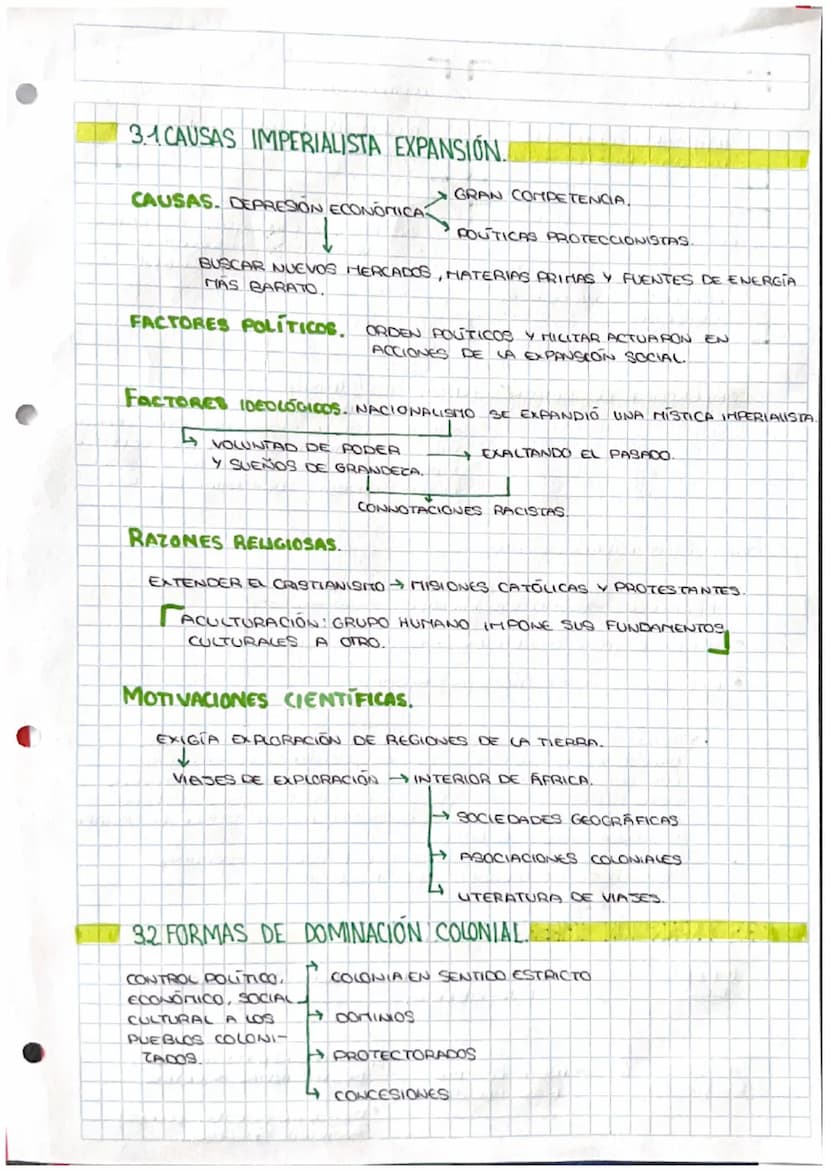 3.1 CAUSAS IMPERIALISTA EXPANSIÓN.
CAUSAS. DEPRESIÓN ECONÓMICA → GRAN COMPETENCIA.
→ POLÍTICAS PROTECCIONISTAS.
↓
BUSCAR NUEVOS MERCADOS, MATERIAS PRIMAS Y FUENTES DE ENERGÍA
MÁS BARATO.
FACTORES POLÍTICOS. ORDEN POLÍTICOS Y MILITAR ACTUARON EN
ACCIONES DE LA EXPANSIÓN SOCIAL.
FACTORES IDEOLÓGICOS. NACIONALISMO SE EXPANDIÓ UNA MÍSTICA IMPERIALISTA.
↳ VOLUNTAD DE PODER → EXALTANDO EL PASADO.
Y SUEÑOS DE GRANDEZA.
CONNOTACIONES RACISTAS.
RAZONES RELIGIOSAS.
EXTENDER EL CRISTIANISMO → MISIONES CATÓLICAS Y PROTESTANTES.
ACULTURACIÓN: GRUPO HUMANO IMPONE SUS FUNDAMENTOS
CULTURALES A OTRO.
MOTIVACIONES CIENTÍFICAS.
EXIGÍA EXPLORACIÓN DE REGIONES DE LA TIERRA.
↓
VIAJES DE EXPLORACIÓN → INTERIOR DE ÁFRICA.
→ SOCIEDADES GEOGRÁFICAS
→ ASOCIACIONES COLONIALES
↳ LITERATURA DE VIAJES.
3.2 FORMAS DE DOMINACIÓN COLONIAL.
CONTROL POLÍTICO,
ECONÓMICO, SOCIAL
CULTURAL A LOS
PUEBLOS COLONI-
ZADOS.
→ COLONIA EN SENTIDO ESTRICTO
→ DOMINIOS
→ PROTECTORADOS
↳ CONCESIONES